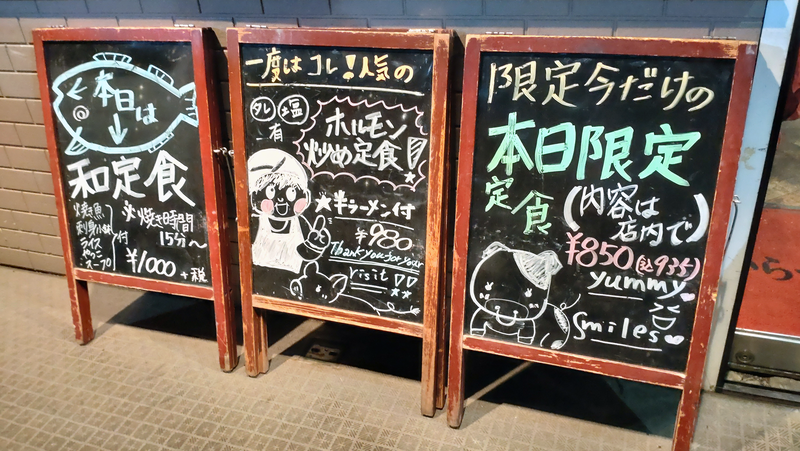 本日は
和定食
焼き魚
刺身小鉢
ライス
やっこ
スープ
付
※焼き時間
15分～
¥1000+税
一度はコレ!人気の
タレ 塩
有
ホルモン
炒め定食!!
★半ラーメン付
¥980
Thank you for your
visit
限定今だけの
本日限定
定食
(内容は
店内で)
¥850(込935)
yummy
Smiles